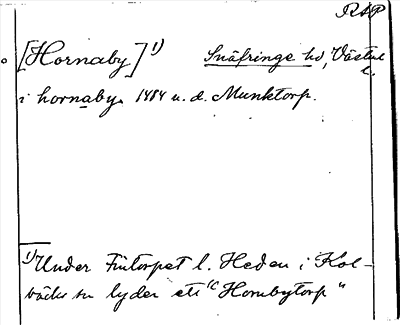 RAP
[Hornaby]¹⁾ Snäfringe hd, Västml l.
i hornaby. 1484 u. d. Munktorp.
¹⁾Under Fintorpet l. Heden i Kol-
bäcks sn lyder ett "Hornbytorp"